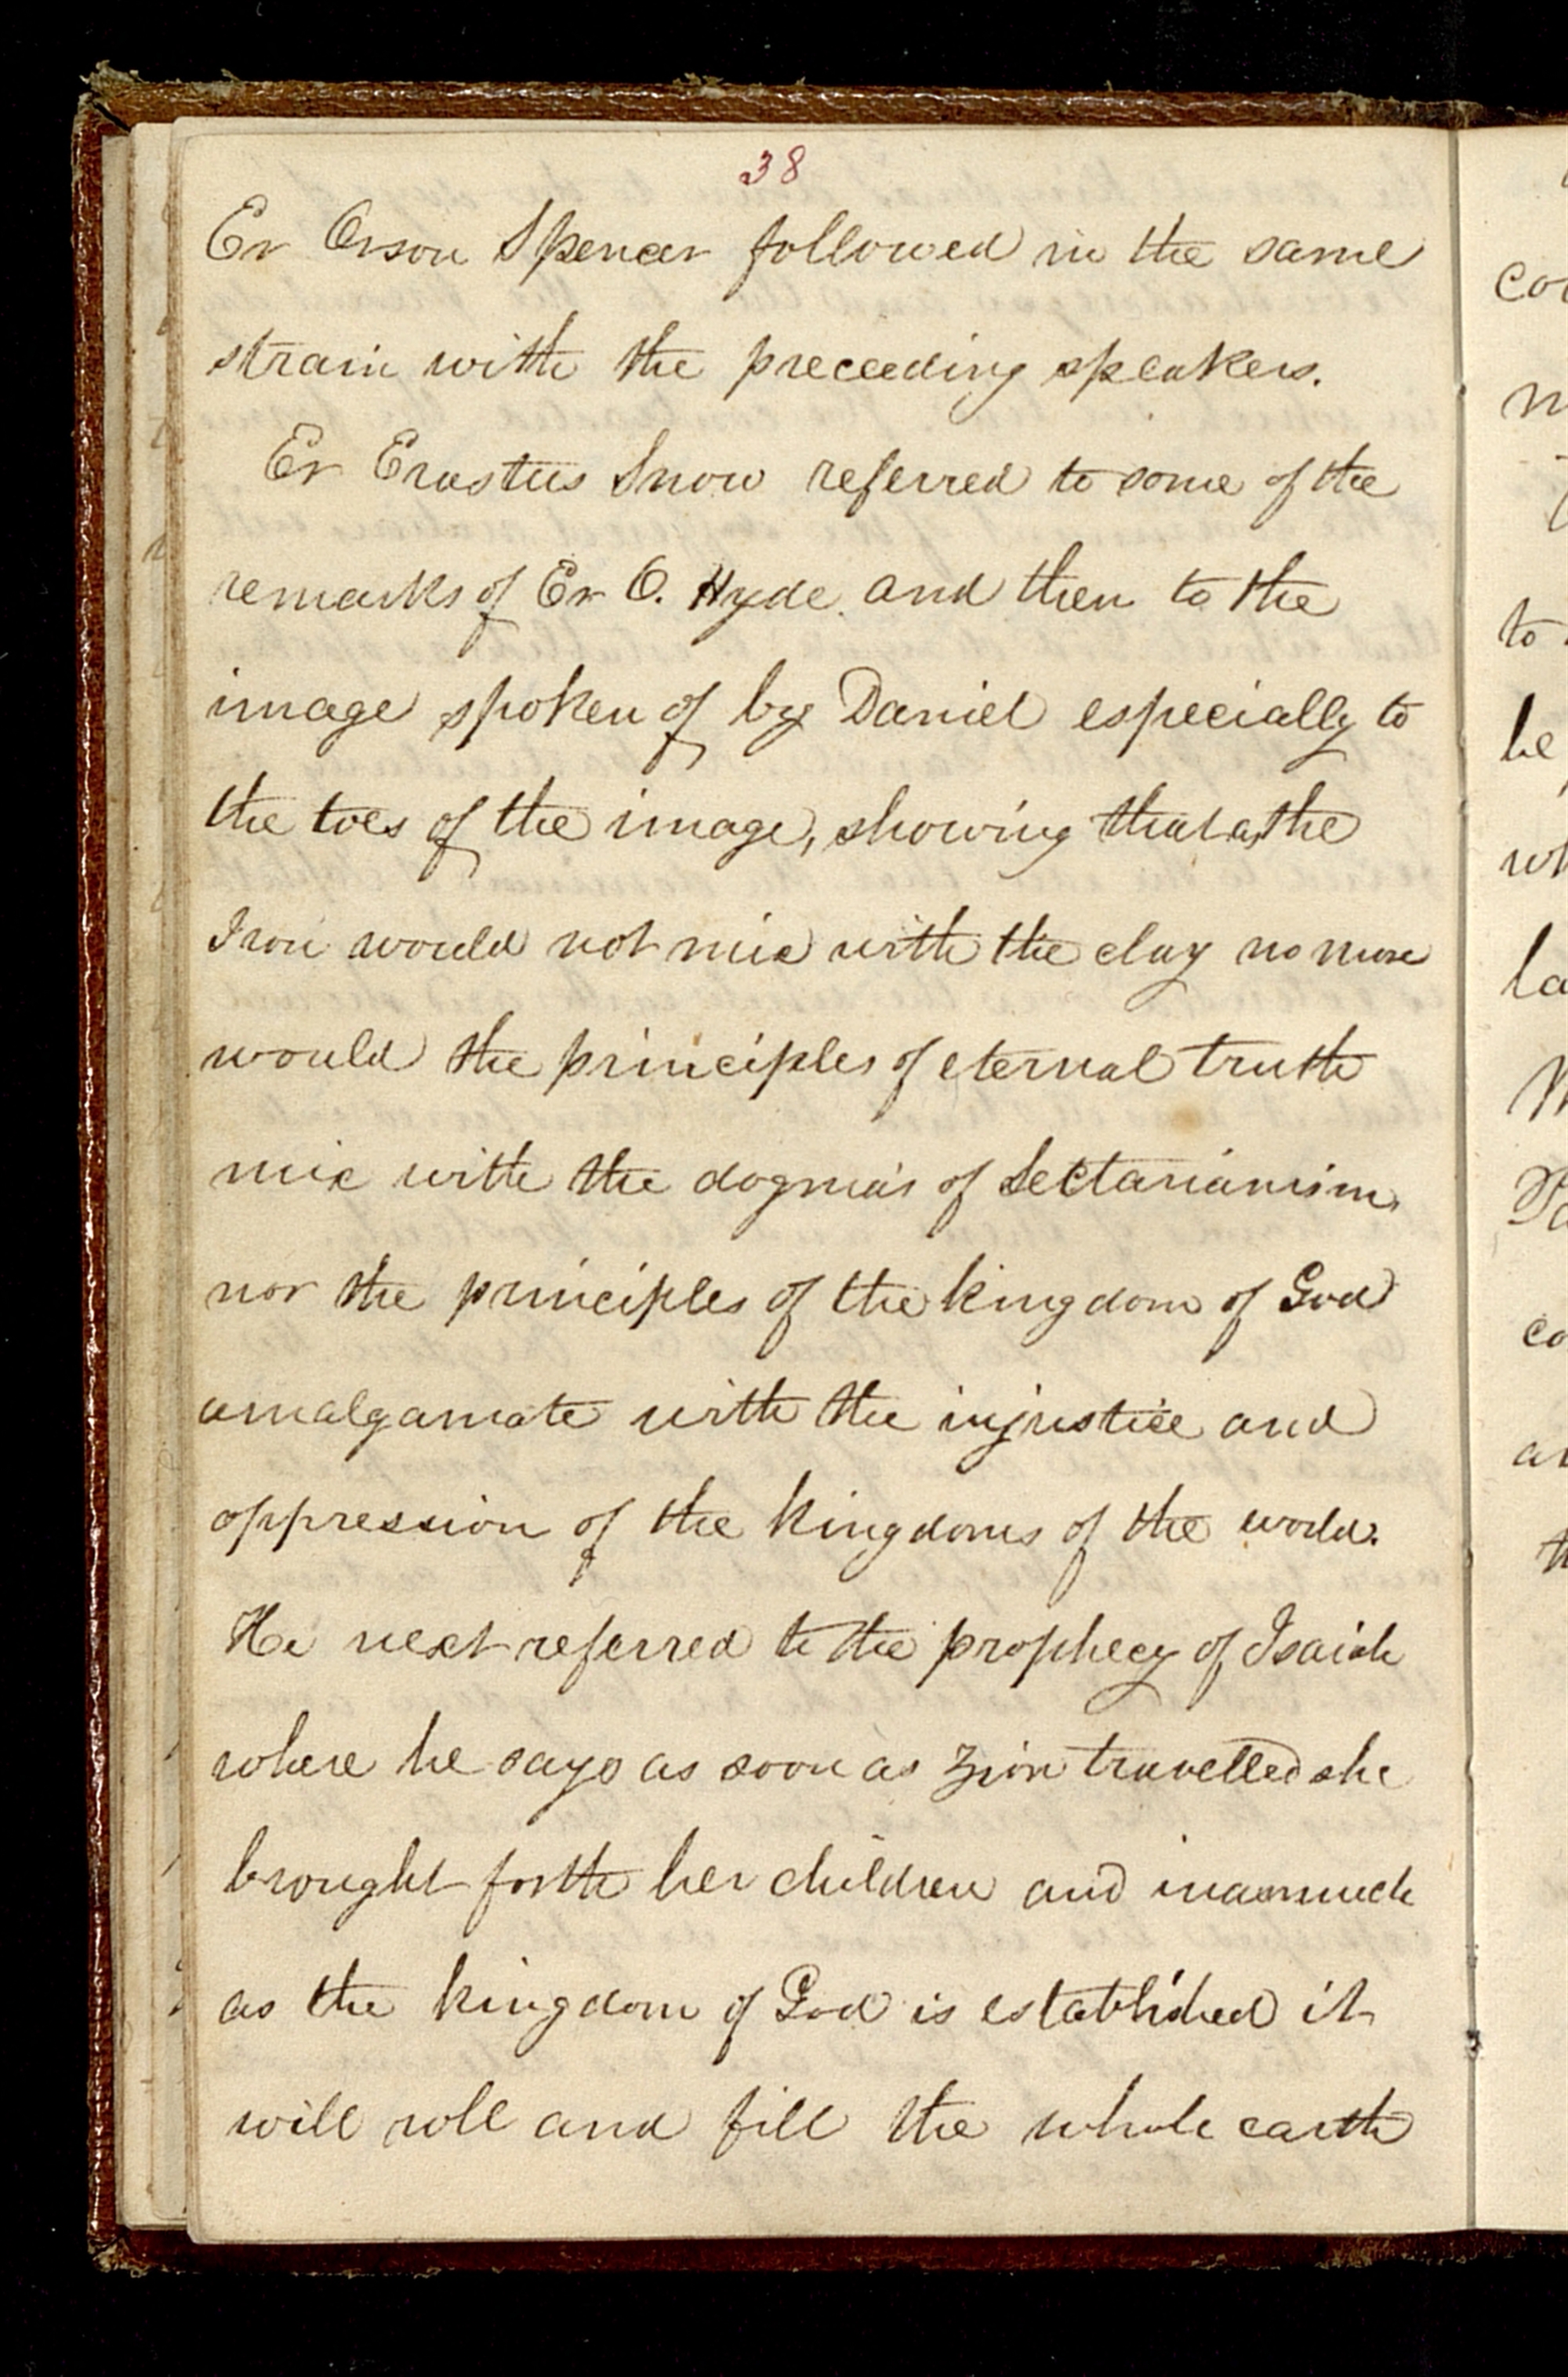 38
Er Orson Spencer followed in the same
strain with the preceeding speakers.
Er Erastus Snow referred to some of the
remarks of Er O. Hyde and then to the
image spoken of by Daniel especially to
the toes of the image, showing that as the
Iron would not mix with the clay no more
would the principles of eternal truth
mix with the dogma's of Sectarianism,
nor the principles of the kingdom of God
amalgamate with the injustice and
oppression of the kingdoms of the world.
He next referred to the prophecy of Isaiah
where he says as soon as Zion travelled she
brought forth her children and inasmuch
as the kingdom of God is established it
will roll and fill the whole earth
co
m
to
be
wh
la
M
Pa
co
an